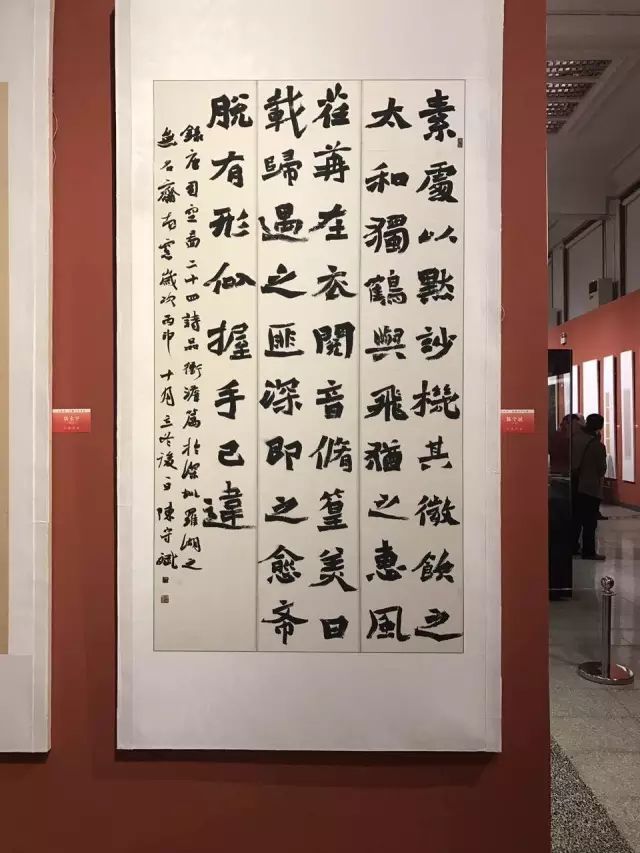 素處以默玅機其微飲之
太和獨鶴與飛猶之惠風
荏苒在衣閱音脩篁美曰
載歸遇之匪深即之愈希
脫有形似握手已違
錄唐司空啚二十四詩品衝澹篇於深圳羅湖之
無名齋南窗歲次丙申十月立冬後日陳守斌
陈守斌